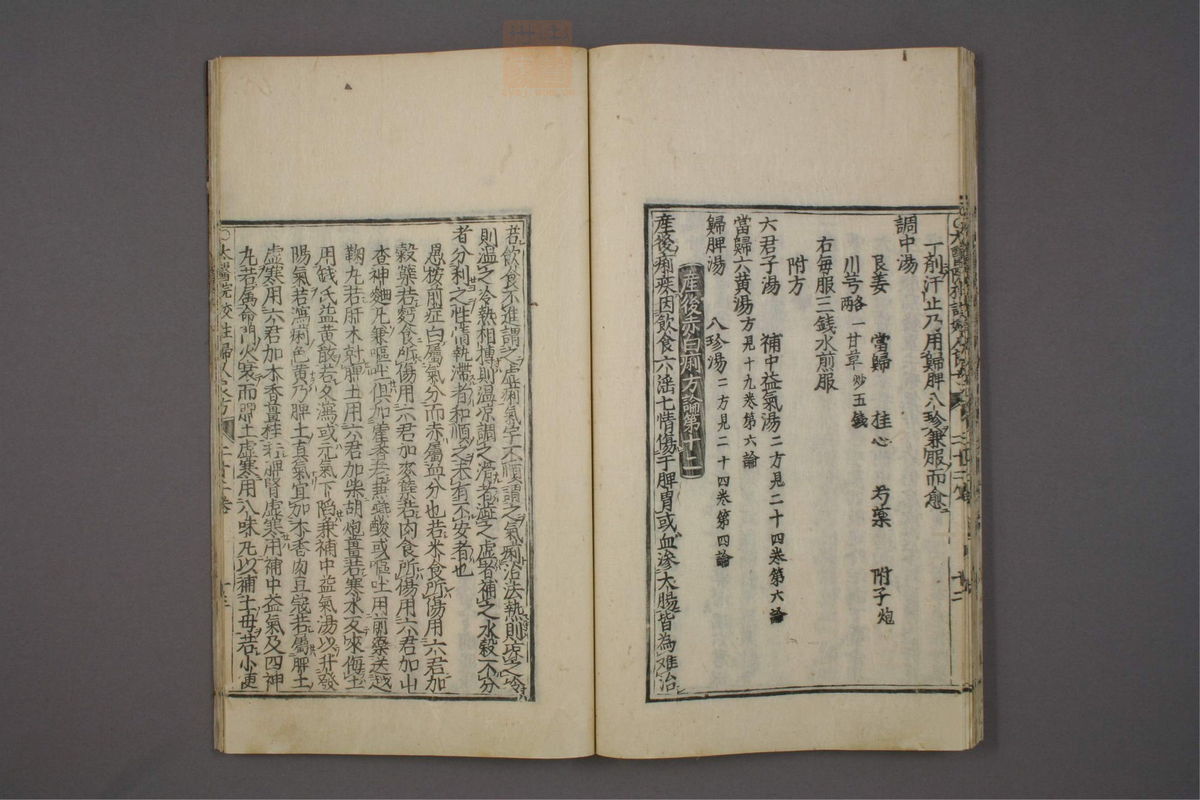 一剤汗止乃用歸脾八珍兼服而愈
調中湯
良姜 當歸 桂心 芍藥 附子炮
川芎各一兩 甘草炒五錢
右毎服三錢水煎服
附方
六君子湯 補中益氣湯二方見二十四卷第六論
當歸六黄湯方見十九卷第六論
歸脾湯 八珍湯二方見二十四卷第四論
産後赤白痢方論第十二
産後痢疾因飲食六滛七情傷于脾胃或血滲大腸皆為難治
若飲食不進謂之虚痢氣宇不順謂之氣痢治法熱則凉之冷
則温之冷熱相搏則温凉調之滑者澁之虚者補之水穀不分
者分利之性情執滯者和順之未有不安者也
愚按前症白屬氣分而赤屬血分也若米食所傷用六君加
穀蘖若麪食所傷用六君加麥蘖若肉食所傷用六君加山
查神麯凡兼嘔吐俱加藿香若兼嚥酸或嘔吐用前藥送越
鞠丸若肝木尅脾土用六君加柴胡炮薑若寒水反來侮土
用錢氏益黄散若久瀉或元氣下陷兼補中益氣湯以升發
陽氣若瀉痢色黄乃脾土真氣宜加木香肉豆蔻若屬脾土
虚寒用六君加木香薑桂若脾腎虚寒用補中益氣及四神
丸若屬命門火衰而脾土虚寒用八味丸以補土母若小便
太醫院校註婦人良方 二十三卷